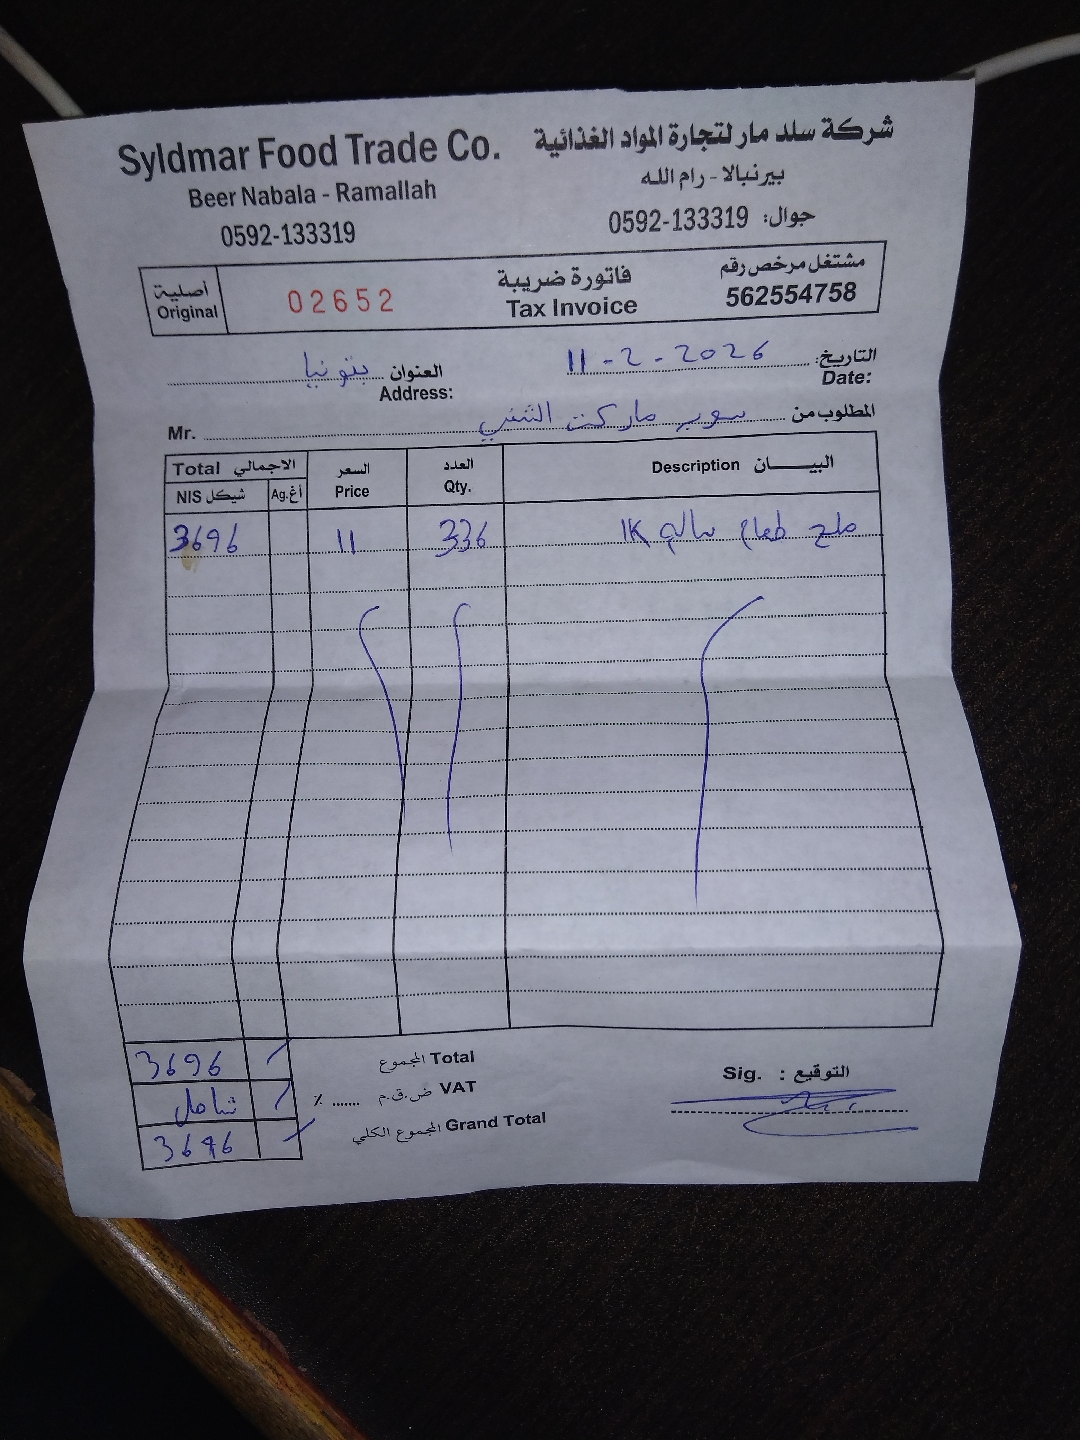 شركة سلد مار لتجارة المواد الغذائية
Syldmar Food Trade Co.
بيرنبالا - رام الله
Beer Nabala - Ramallah
جوال: 0592-133319
0592-133319
مشتغل مرخص رقم
562554758
فاتورة ضريبة
Tax Invoice
02652
أصلية
Original
التاريخ: 11-2-2026
Date:
العنوان بتونيا
Address:
المطلوب من سوبر ماركت
Mr.
البيـــــان Description
العدد
Qty.
السعر
Price
الاجمالي Total
أغ.Ag
شيكل NIS
ملح طعام 1K 336 11 3696
المجموع Total 3696
ض.ق.م VAT ....... ٪ شامل
المجموع الكلي Grand Total 3696
التوقيع : Sig.